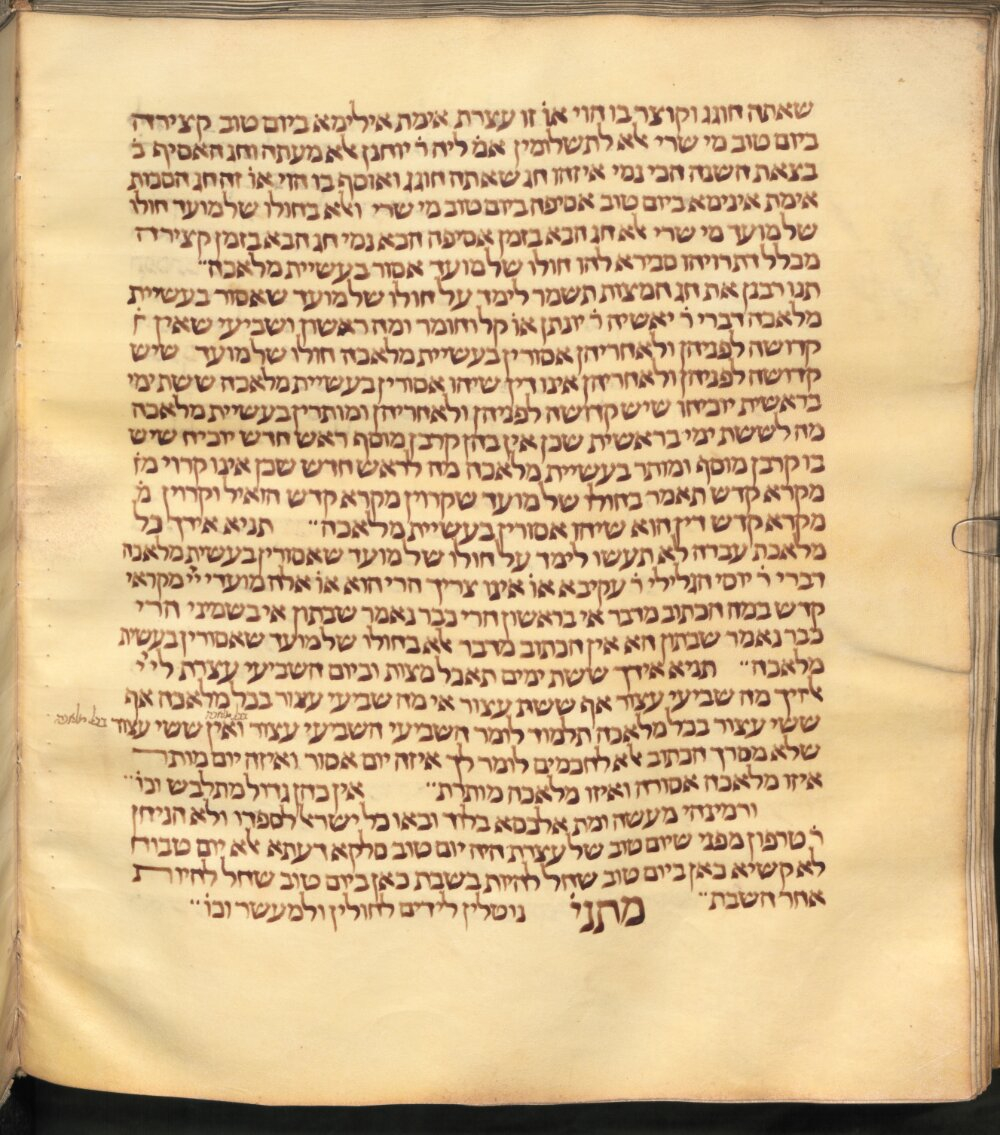 שאתה חוגג וקוצר בו הוי או׳ זו עצרת אימת אילימא ביום טוב קצירה
ביום טוב מי שרי אלא לתשלומין אמ׳ ליה ר׳ יוחנן אלא מעתה וחג האסיף ב׳
בצאת השנה הכי נמי איזהו חג שאתה חוגג ואוסף בו הוי או׳ זה חג הסכות
אימת אינימא ביום טוב אסיפה ביום טוב מי שרי ואלא בחולו שלמועד חולו
שלמועד מי שרי אלא חג הבא בזמן אסיפה הכא נמי חג הבא בזמן קצירה
מכלל דתרויהו סבירא להו חולו שלמועד אסור בעשיית מלאכה״
תנו רבנן את חג המצות תשמר לימד על חולו שלמועד שאסור בעשיית
מלאכה דברי ר׳ יאשיה ר׳ יונתן או׳ קל וחומר ומה ראשון ושביעי שאין
קדושה לפניהן ולאחריהן אסורין בעשיית מלאכה חולו שלמועד שיש
קדושה לפניהן ולאחריהן אינו דין שיהו אסורין בעשיית מלאכה ששת ימי
בראשית יוכיחו שיש קדושה לפניהן ולאחריהן ומותרין בעשיית מלאכה
מה לששת ימי בראשית שכן אין בהן קרבן מוסף ראש חדש יוכיח שיש
בו קרבן מוסף ומותר בעשיית מלאכה מה לראש חדש שכן אינו קרוי מ׳
מקרא קדש תאמר בחולו שלמועד שקרוין מקרא קדש הואיל וקרוין מ׳
מקרא קדש דין הוא שיהו אסורין בעשיית מלאכה״ תניא אידך כל
מלאכת עבדה לא תעשו לימד על חולו שלמועד שאסורין בעשית מלאכה
דברי ר׳ יוסי הגלילי ר׳ עקיבא או׳ אינו צריך הרי הוא או׳ אלה מועדי ייי מקראי
קדש במה הכתוב מדבר אי בראשון הרי כבר נאמר שבתון אי בשמיני הרי
כבר נאמר שבתון הא אין הכתוב מדבר אלא בחולו שלמועד שאסורין בעשית
מלאכה״ תניא אידך ששת ימים תאכל מצות וביום השביעי עצרת לייי
אלהיך מה שביעי עצור אף ששת עצור אי מה שביעי עצור בכל מלאכה אף
ששי עצור בכל מלאכה תלמוד לומר השביעי השביעי עצור בכל מלאכה ואין ששי עצור בכל מלאכה
שלא מסרך הכתוב אלא לחכמים לומר לך איזה יום אסור ואיזה יום מותר
איזו מלאכה אסורה ואיזו מלאכה מותרת״ אין כהן גדול מתלבש וכו׳״
ורמינהי מעשה ומת אלכסא בלוד ובאו כל ישראל לספדו ולא הניחן
ר׳ טרפון מפני שיום טוב של עצרת היה יום טוב סלקא דעתא אלא יום טבוח
לא קשיא כאן ביום טוב שחל להיות בשבת כאן ביום טוב שחל להיות
אחר השבת״ מתני׳ נוטלין לידים לחולין ולמעשר וכו׳״